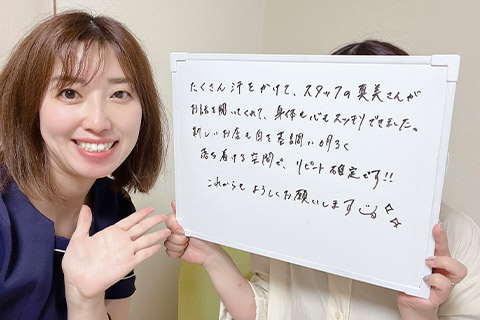 たくさん汗をかけて、スタッフの真美さんが
お話を聞いてくれて、身体も心もスッキリできました。
新しいお店も白を基調に明るく
落ち着ける空間で、リピート確定です!!
これからもよろしくお願いします